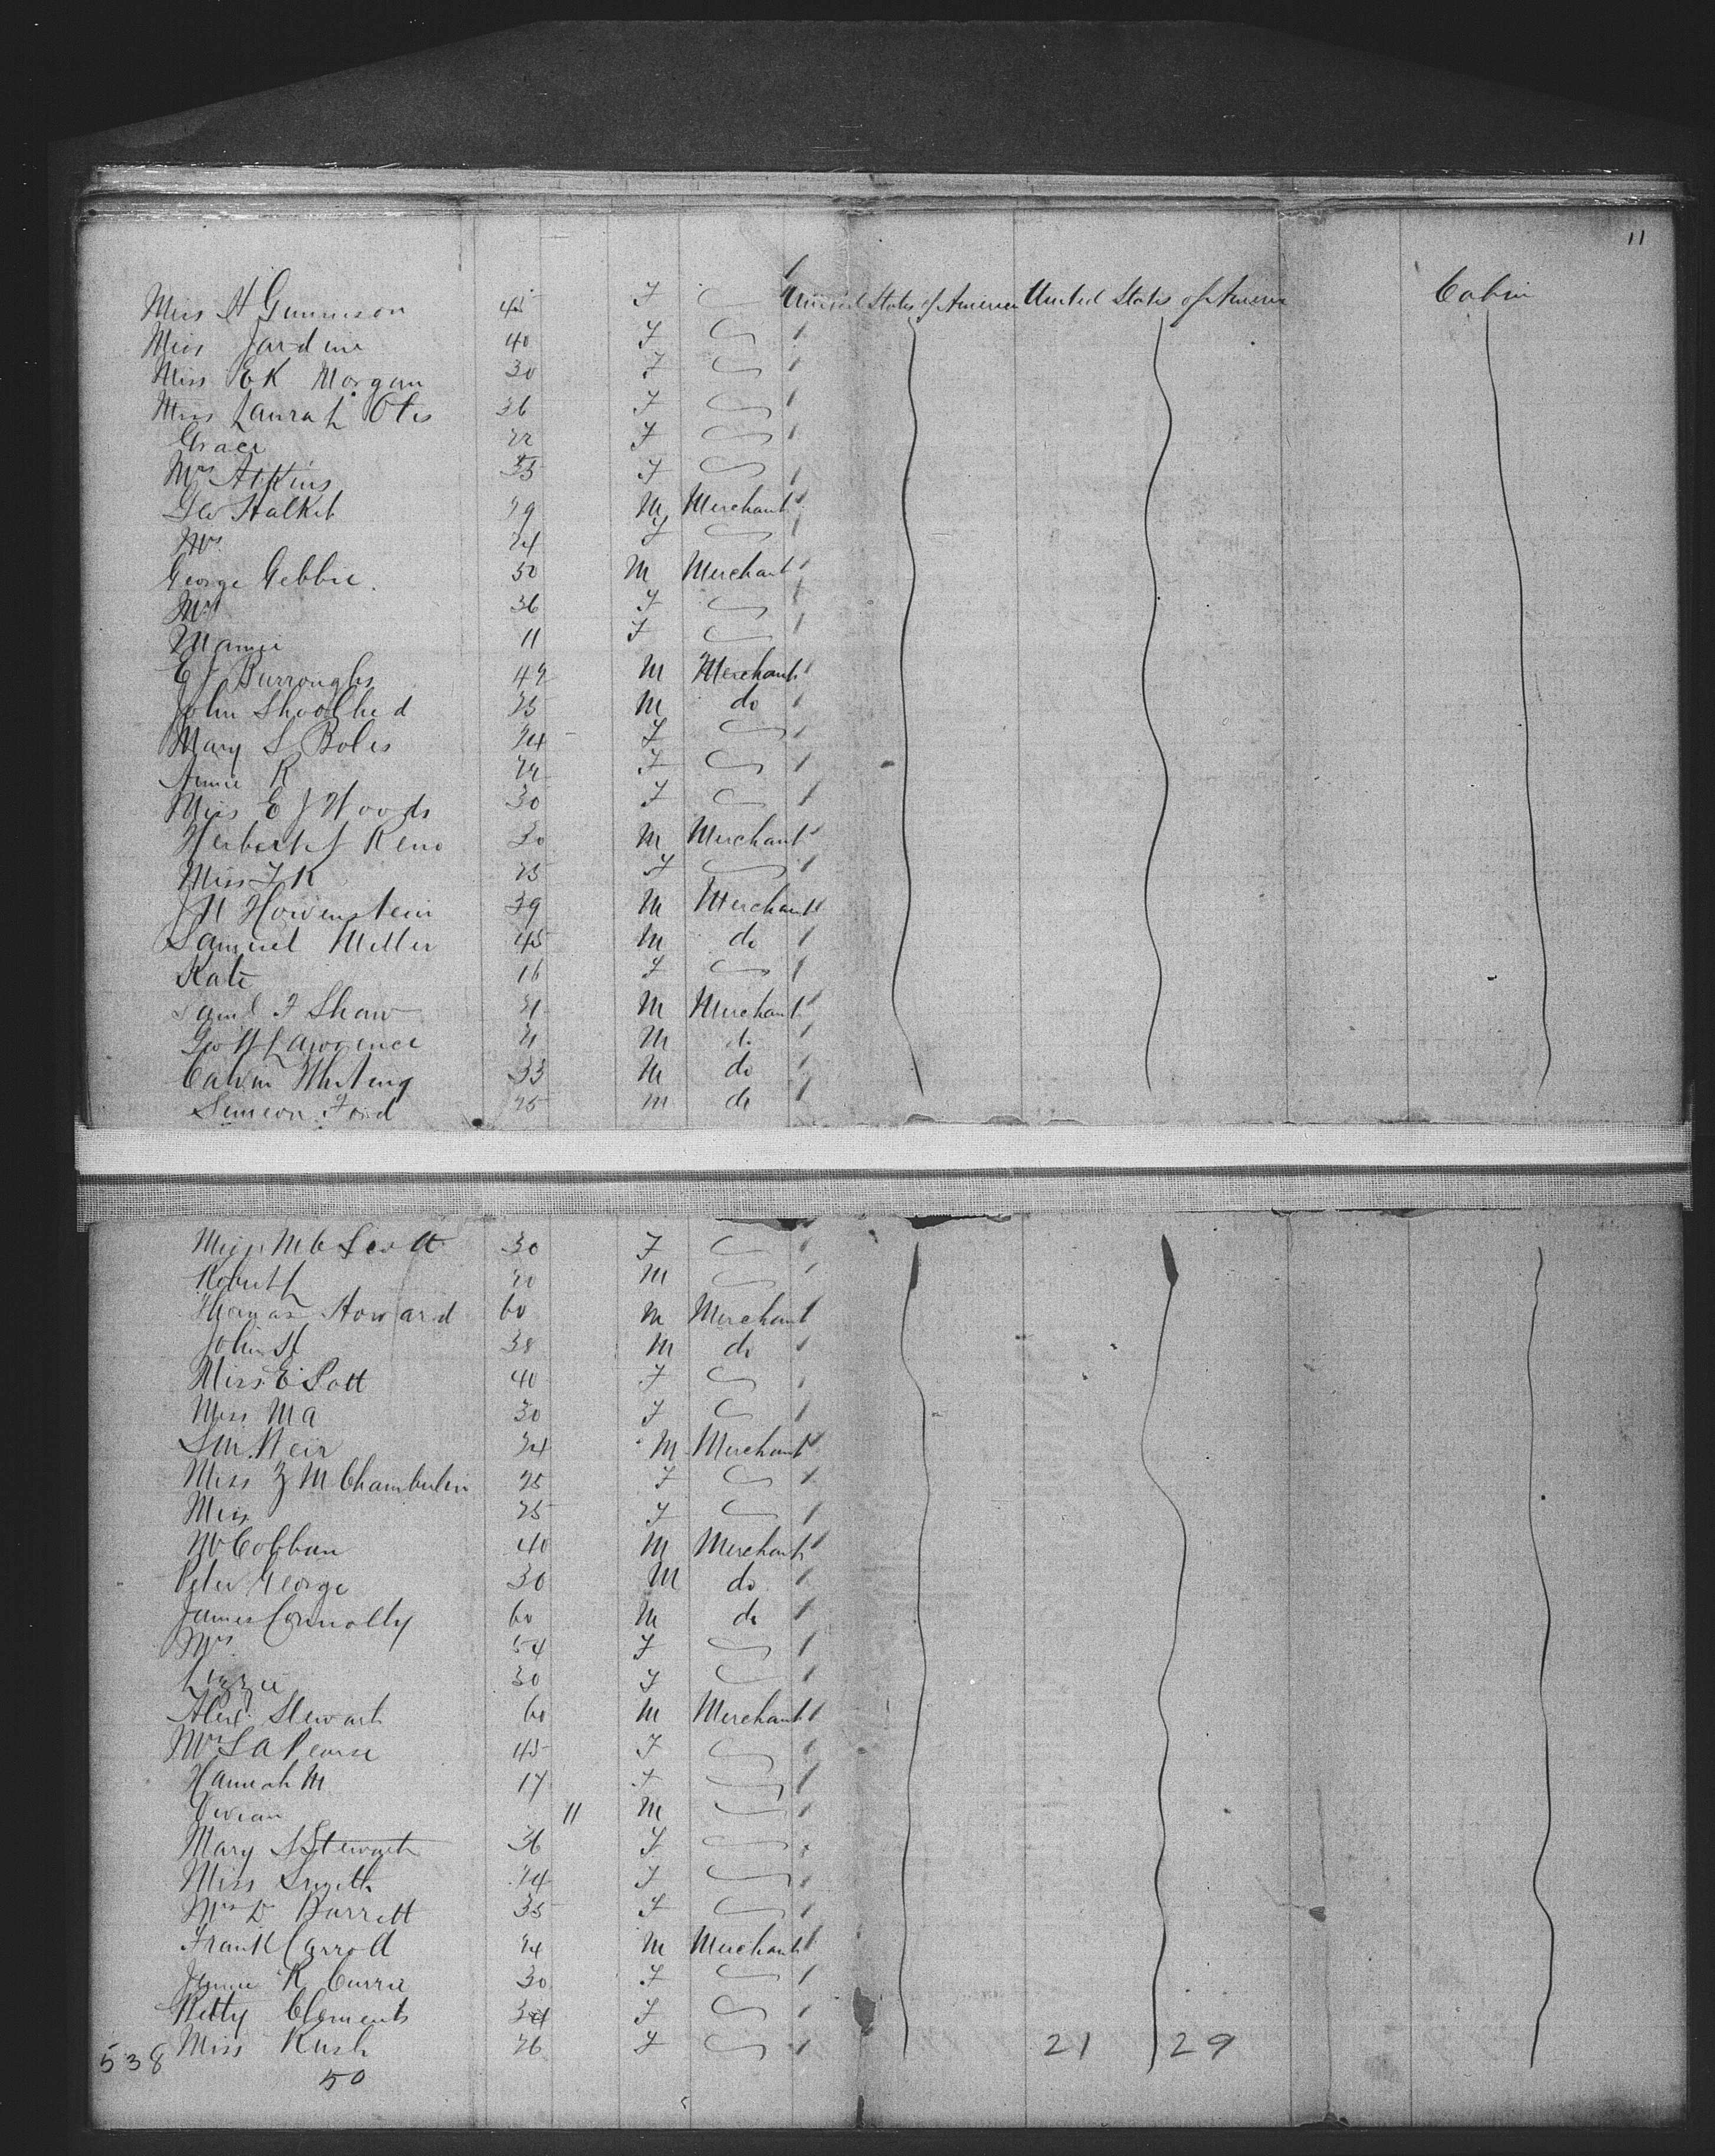 11
Miss H Gunnison 45 F United States of America United States of America Cabin
Miss Jardine 40 F
Miss E K Morgan 30 F
Miss Laura L Otis 36 F
Grace 22 F
Mrs Atkins 55 F
Geo Stalket 29 M Merchant
Mrs 24 F
George Gebbie. 50 M Merchant
Mrs 36 F
Mamie 11 F
E J Burroughs 42 M Merchant
John Shoolhed 25 M do
Mary S Boles 24 F
Annie R 22 F
Miss E J Woods 30 F
Herbert S Reno 30 M Merchant
Miss F K 25 F
J H Howenstein 39 M Merchant
Samuel Miller 45 M do
Kate 16 F
Saml F Shaw 21 M Merchant
Geo H Lawrence 21 M do
Calvin Whiting 33 M do
Simeon Ford 25 M do
Miss M C Scott 30 F
Robert L 20 M
Thomas Howard 60 M Merchant
John H 38 M do
Miss E Pott 40 F
Miss M A 30 F
Weir 24 M Merchant
Miss Z M Chamberlin 25 F
Miss 25 F
W Cobban 40 M Merchant
Peter George 30 M do
James Connolly 60 M do
Mrs 54 F
Lizzie 30 F
Alex. Stewart 60 M Merchant
Mrs S A Pearse 45 F
Hannah M 17 F
Vivian 11 M
Mary S Stewart 36 F
Miss Smyth 24 F
Mrs D Barrett 35 F
Frank Carroll 24 M Merchant
Jennie R Currie 30 F
Kitty Clements F
Miss Rush 26 F 21 29
538
50